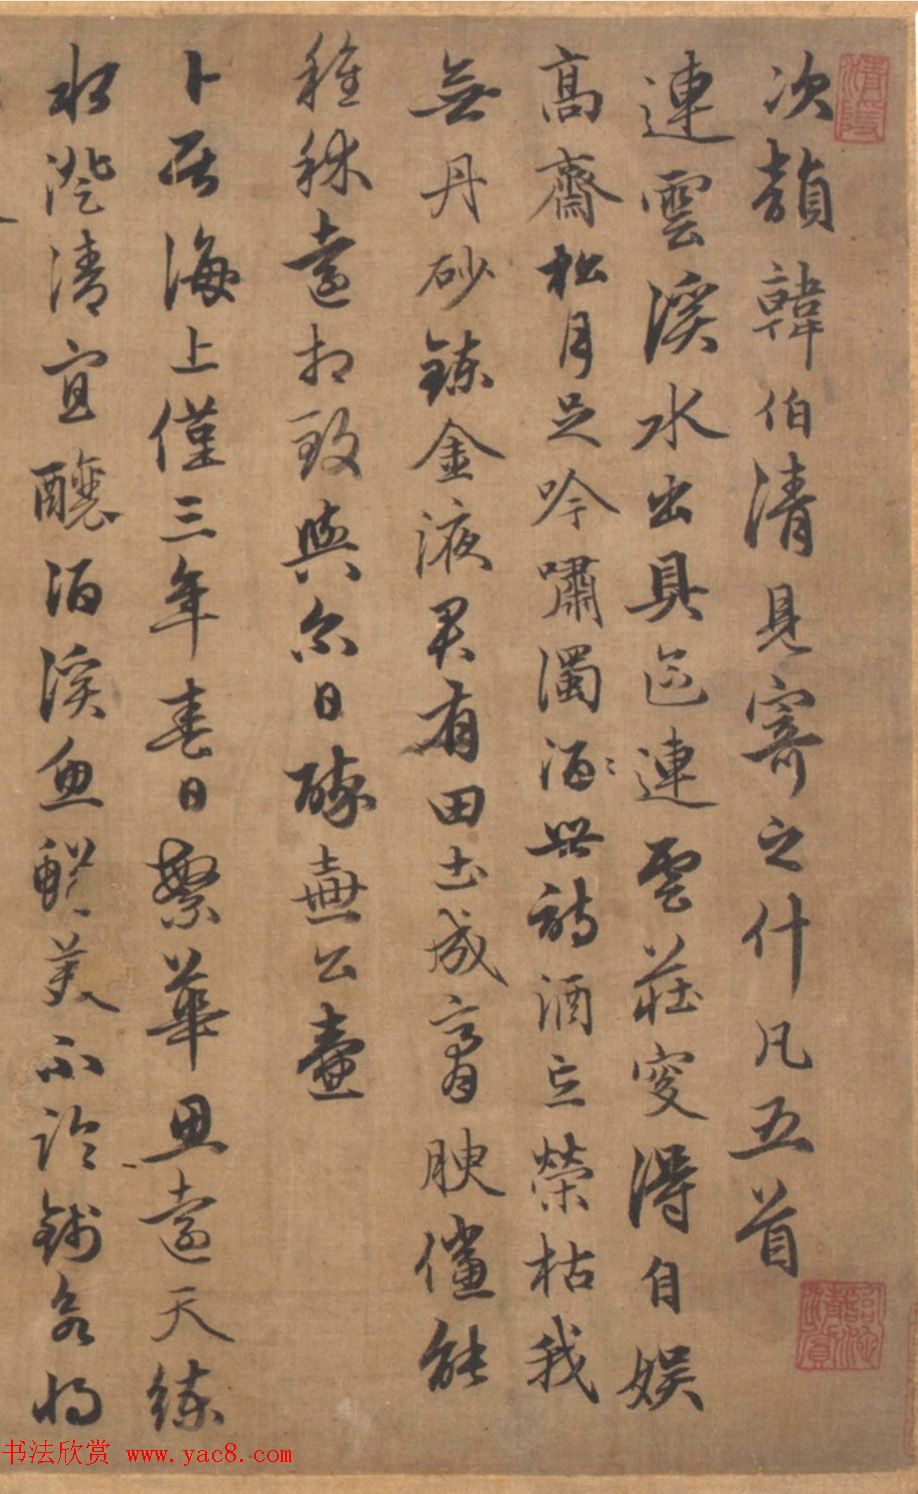 次韻韓伯清見寄之什凡五首
連雲溪水出具區連雲莊叟得自娛
高齋松月足吟嘯濁酒世詩酒忘榮枯我
無丹砂鍊金液君有田土成膏腴儻能
種秫遠相致與爾日醉壺公壺
卜居海上僅三年春日繁華思遠天練
水澄清宜釀酒溪魚鮮美不論錢客將
书法欣赏 www.yac8.com